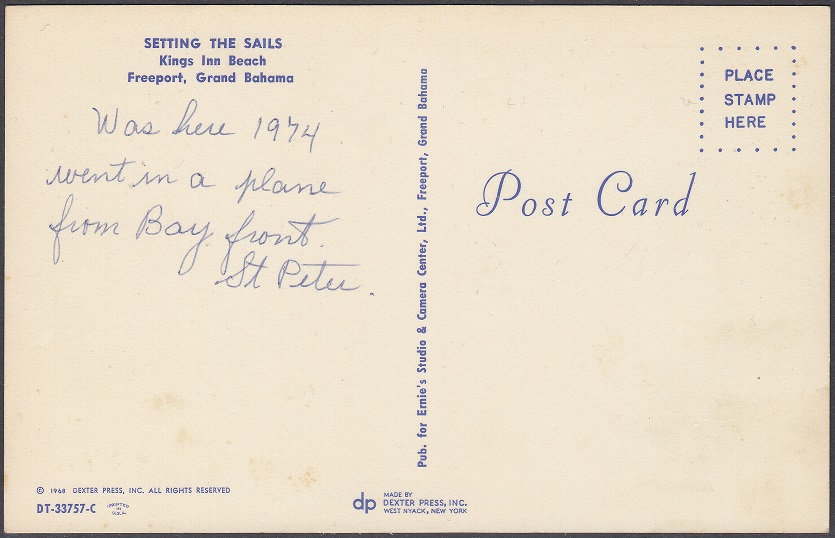 SETTING THE SAILS
Kings Inn Beach
Freeport, Grand Bahama
Was here 1974
went in a plane
from Bay front.
St Peter.
© 1968 DEXTER PRESS, INC. ALL RIGHTS RESERVED
DT-33757-C
PRINTED
IN
U.S.A.
Pub. for Ernie's Studio & Camera Center, Ltd., Freeport, Grand Bahama
dp
MADE BY
DEXTER PRESS, INC.
WEST NYACK, NEW YORK
PLACE
STAMP
HERE
Post Card